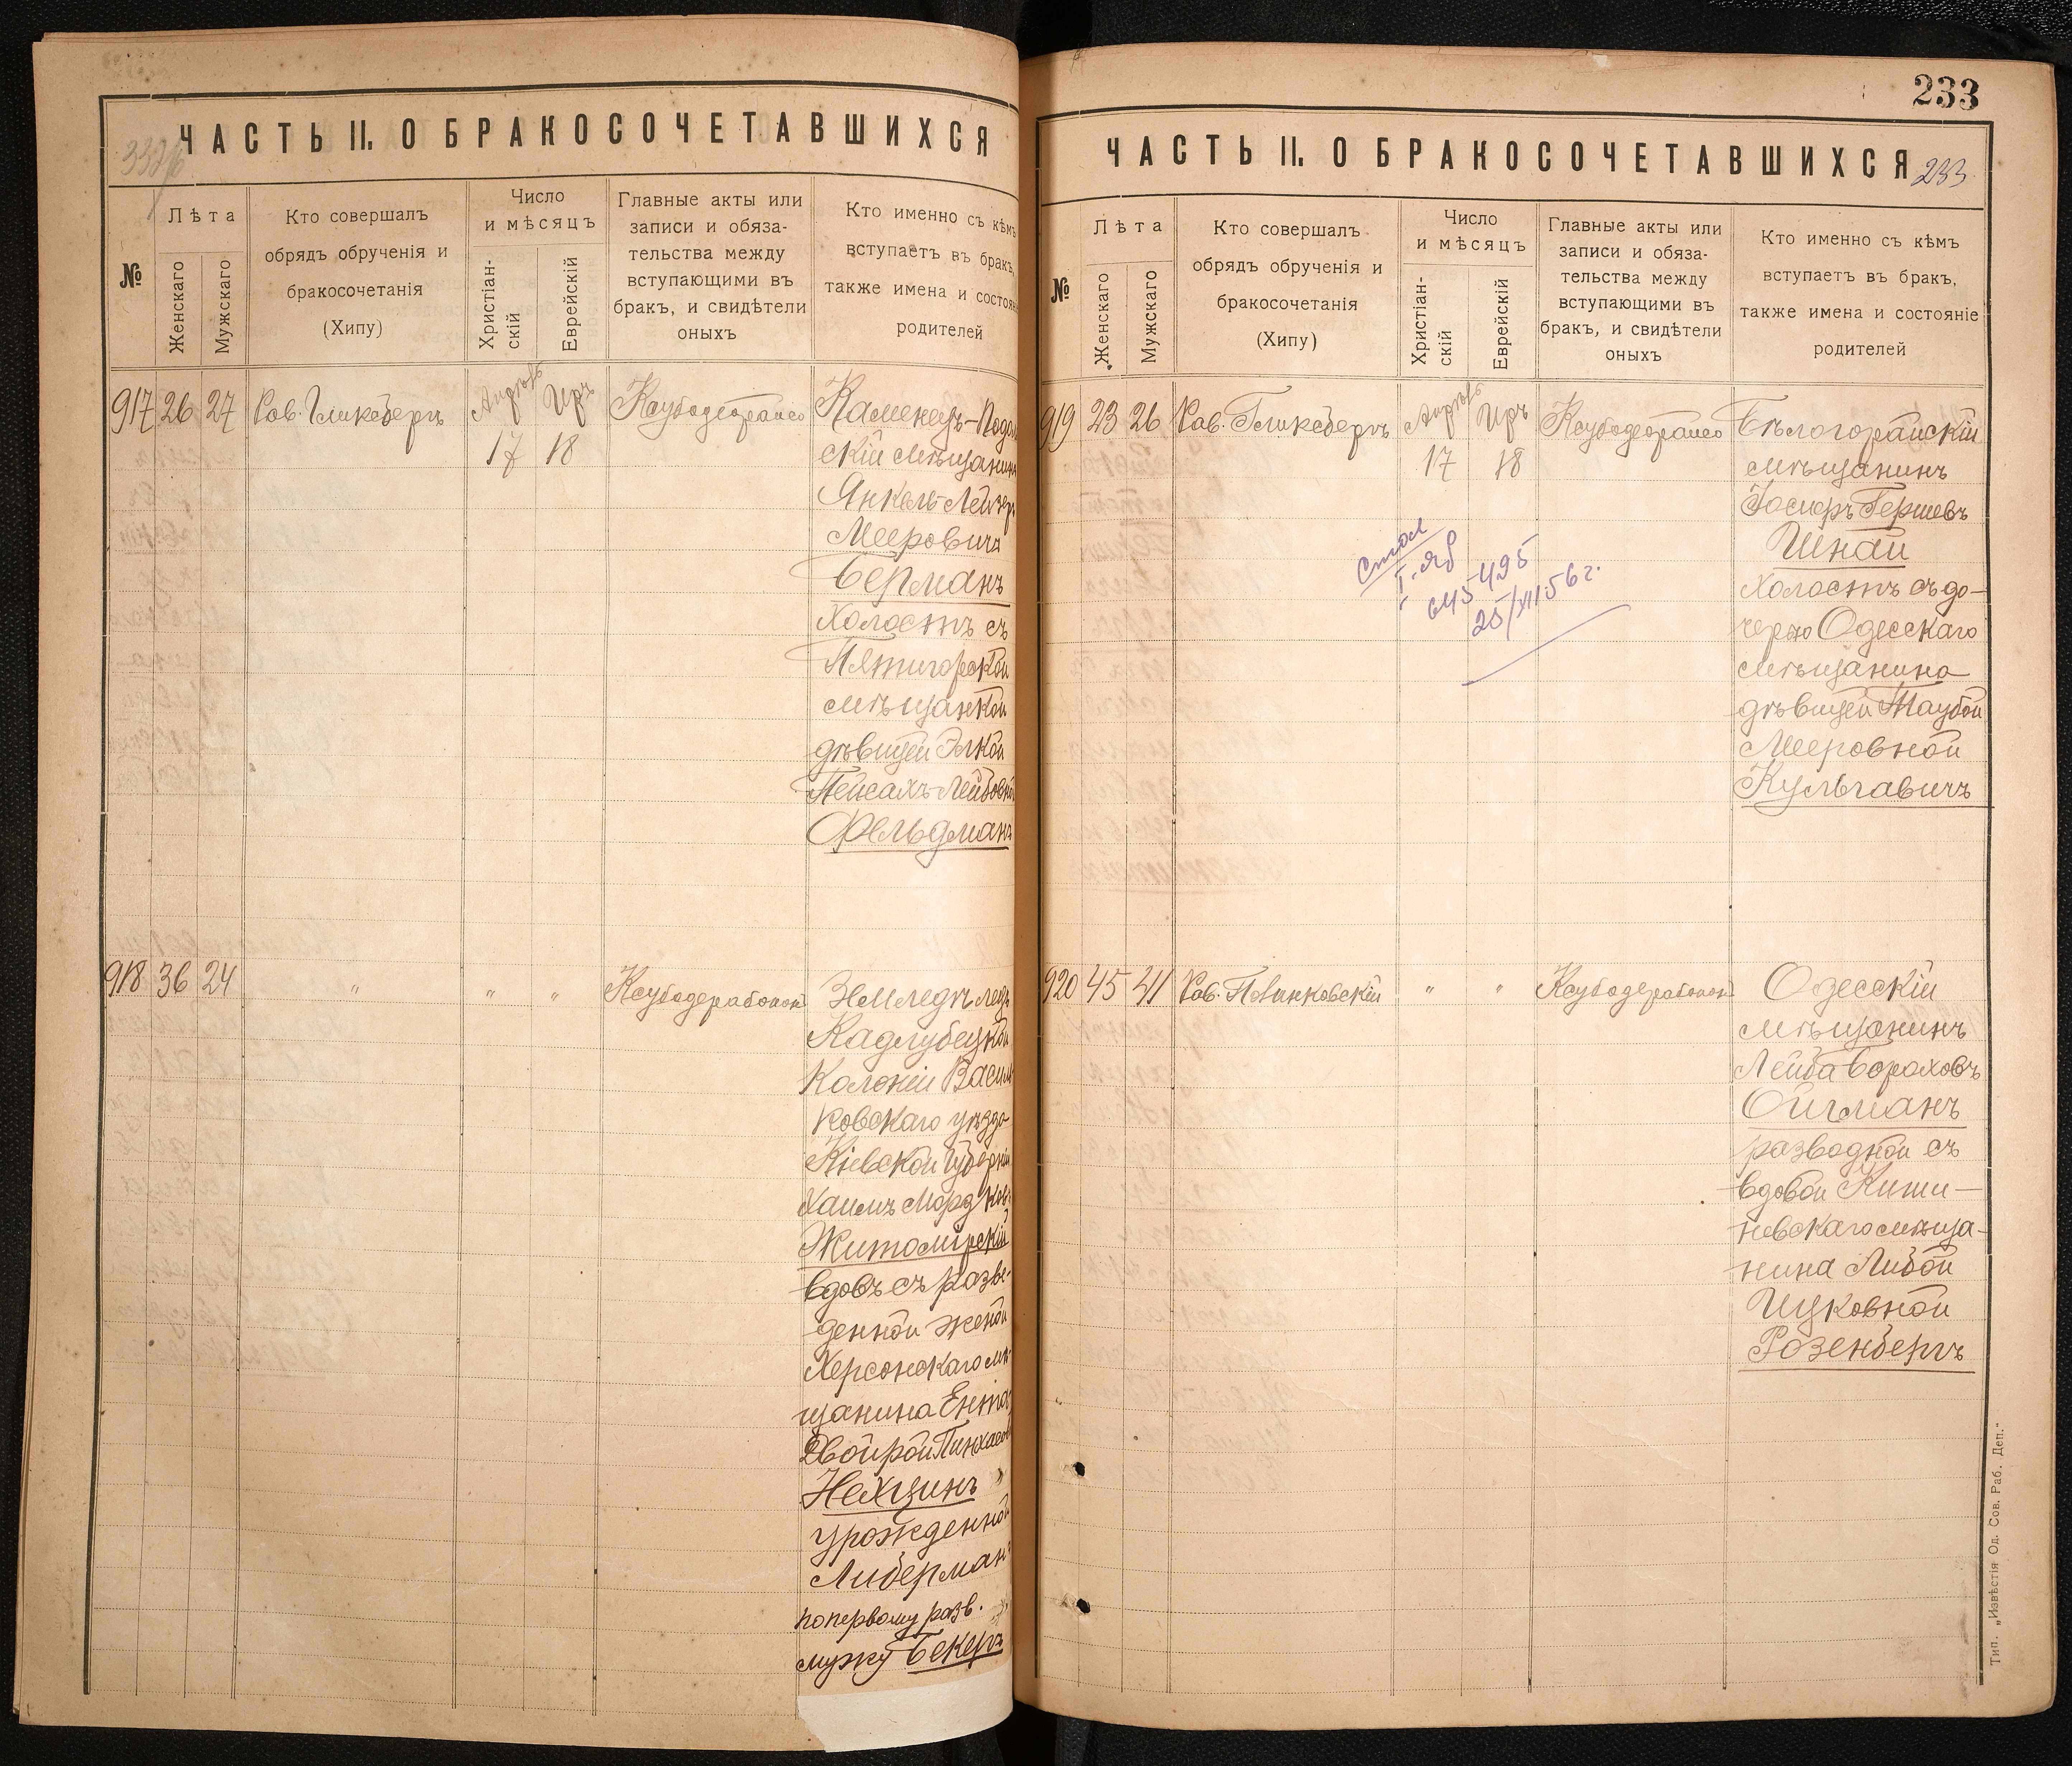 ЧАСТЬ II. О БРАКОСОЧЕТАВШИХСЯ
№
Лѣта
Женскаго
Мужскаго
Кто совершалъ
обрядъ обрученія и
бракосочетанія
(Хипу)
Число
и мѣсяцъ
Христіан-
скій
Еврейскій
Главные акты или
записи и обяза-
тельства между
вступающими въ
бракъ, и свидѣтели
оныхъ
Кто именно съ кѣмъ
вступаетъ въ бракъ,
также имена и состоян
родителей
917 26 27 Рав. Гликсбергъ Апрѣль Иръ
17 18
Каменецъ-Подол
скій мѣщанинъ
Янкель-Лейзеръ
Мееровичъ
Берманъ
холостъ съ
Пятигорской
мѣщанкой
дѣвицей Элкой
Пейсахъ-Лейбовной
Фельдманъ
918 36 24 " " " Ксубодерабонон
Землед
Кадлубецкой
Колоніи Василь
ковскаго уѣзда
Кіевской Губерніи
Хаимъ Мордков
Житомірскій
вдовъ съ разве-
денной женой
Херсонскаго мѣ-
щанина Ентой
Двойрой Пинхасов
Нехзинъ
урожденной
Либерман
по первому разв.
мужу Бекеръ
233
ЧАСТЬ II. О БРАКОСОЧЕТАВШИХСЯ
233
№
Лѣта
Женскаго
Мужскаго
Кто совершалъ
обрядъ обрученія и
бракосочетанія
(Хипу)
Число
и мѣсяцъ
Христіан-
скій
Еврейскій
Главные акты или
записи и обяза-
тельства между
вступающими въ
бракъ, и свидѣтели
оныхъ
Кто именно съ кѣмъ
вступаетъ въ бракъ,
также имена и состояніе
родителей
919 23 26 Рав. Гликсбергъ Апрѣль Иръ
17 18
Бѣлогорайскій
мѣщанинъ
Іосифъ Гершевъ
Шнай
холостъ съ до-
черью Одесскаго
мѣщанина
дѣвицей Таубой
Мееровной
Кульгавичъ
645495
25/XII 56 г.
920 45 41 Рав. Повинковскій " " Ксубодерабонон
Одесскій
мѣщанинъ
Лейба Бораховъ
Ойгманъ
разводной съ
вдовой Киши-
невскаго мѣща-
нина Либой
Ицковной
Розенбергъ
Тип. „Извѣстія Од. Сов. Раб. Деп."